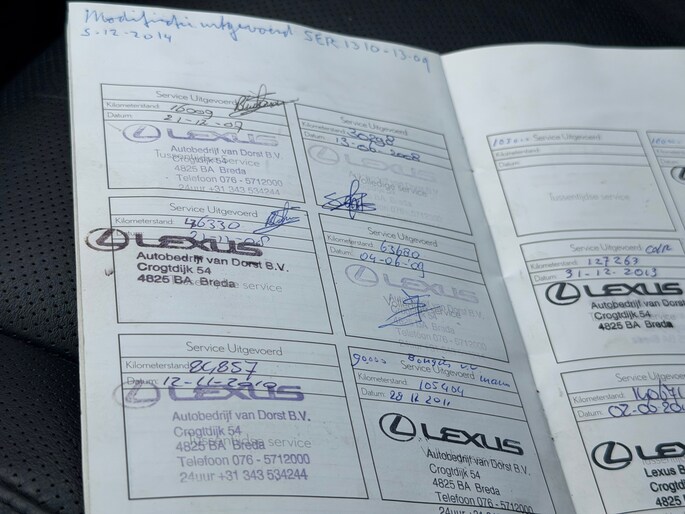 Modificatie uitgevoerd SER 1310-13.09
5-12-2014
Service Uitgevoerd
Kilometerstand: 16009
Datum: 21-12-07
LEXUS
Autobedrijf van Dorst B.V.
Crogtdijk 54
4825 BA Breda
Telefoon 076 - 5712000
24uur +31 343 534244
Service Uitgevoerd
Kilometerstand: 30298
Datum: 13-06-2008
Volledige service
Service Uitgevoerd
Kilometerstand: 46330
Datum:
LEXUS
Autobedrijf van Dorst B.V.
Crogtdijk 54
4825 BA Breda
service
Service Uitgevoerd
Kilometerstand: 63680
Datum: 04-06-'09
LEXUS
service
Service Uitgevoerd
Kilometerstand: 84,857
Datum: 12-11-2010
LEXUS
Autobedrijf van Dorst B.V.
Crogtdijk 54
4825 BA Breda
service
Telefoon 076 - 5712000
24uur +31 343 534244
90000
Service Uitgevoerd
Kilometerstand: 105404
Datum: 28 11 2011
LEXUS
Autobedrijf van Dorst B.V.
Crogtdijk 54
4825 BA Breda
Telefoon 076 - 5712000
Service Uitgevoerd
Kilometerstand:
Datum:
Tussentijdse service
Service Uitgevoerd
Kilometerstand: 127267
Datum: 31-12-2013
LEXUS
Autobedrijf van Dorst
Crogtdijk 54
4825 BA Breda
Service Uitgevoerd
Kilometerstand:
Datum:
LEXUS
Lexus B
4825 BA